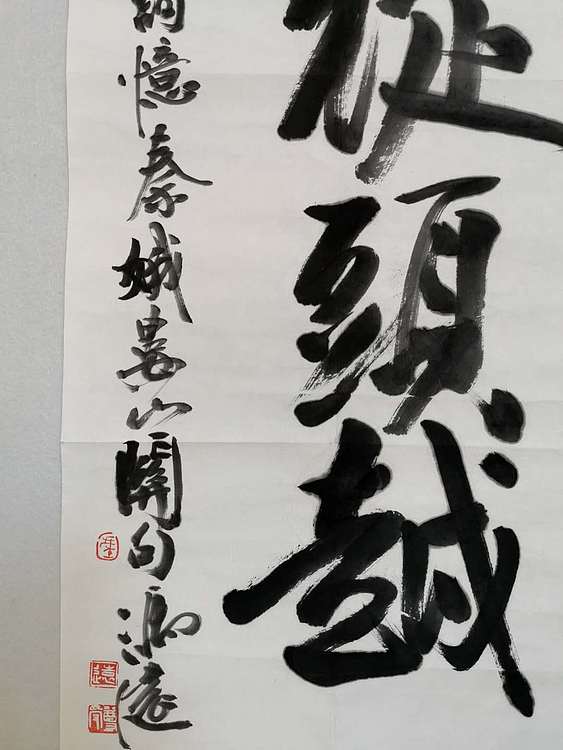 從頭越
詞憶秦娥婁山關句
遠